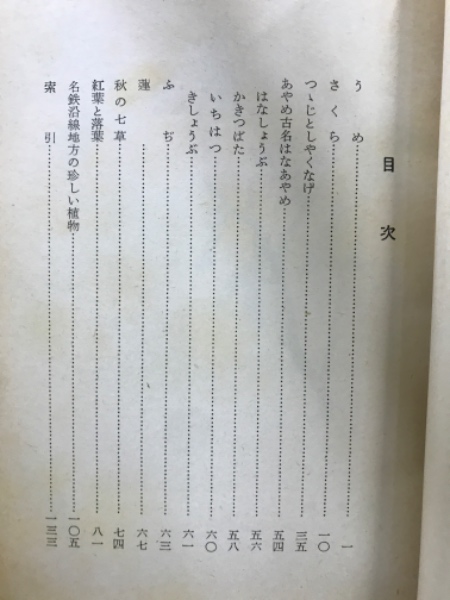 目次
うめ……一
さくら……一〇
つゝじとしやくなげ……三五
あやめ古名はなあやめ……五四
はなしょうぶ……五六
かきつばた……五八
いちはつ……六〇
きしょうぶ……六一
ふぢ……六三
蓮……六七
秋の七草……七四
紅葉と落葉……八一
名鉄沿線地方の珍しい植物……一〇五
索引……一三三